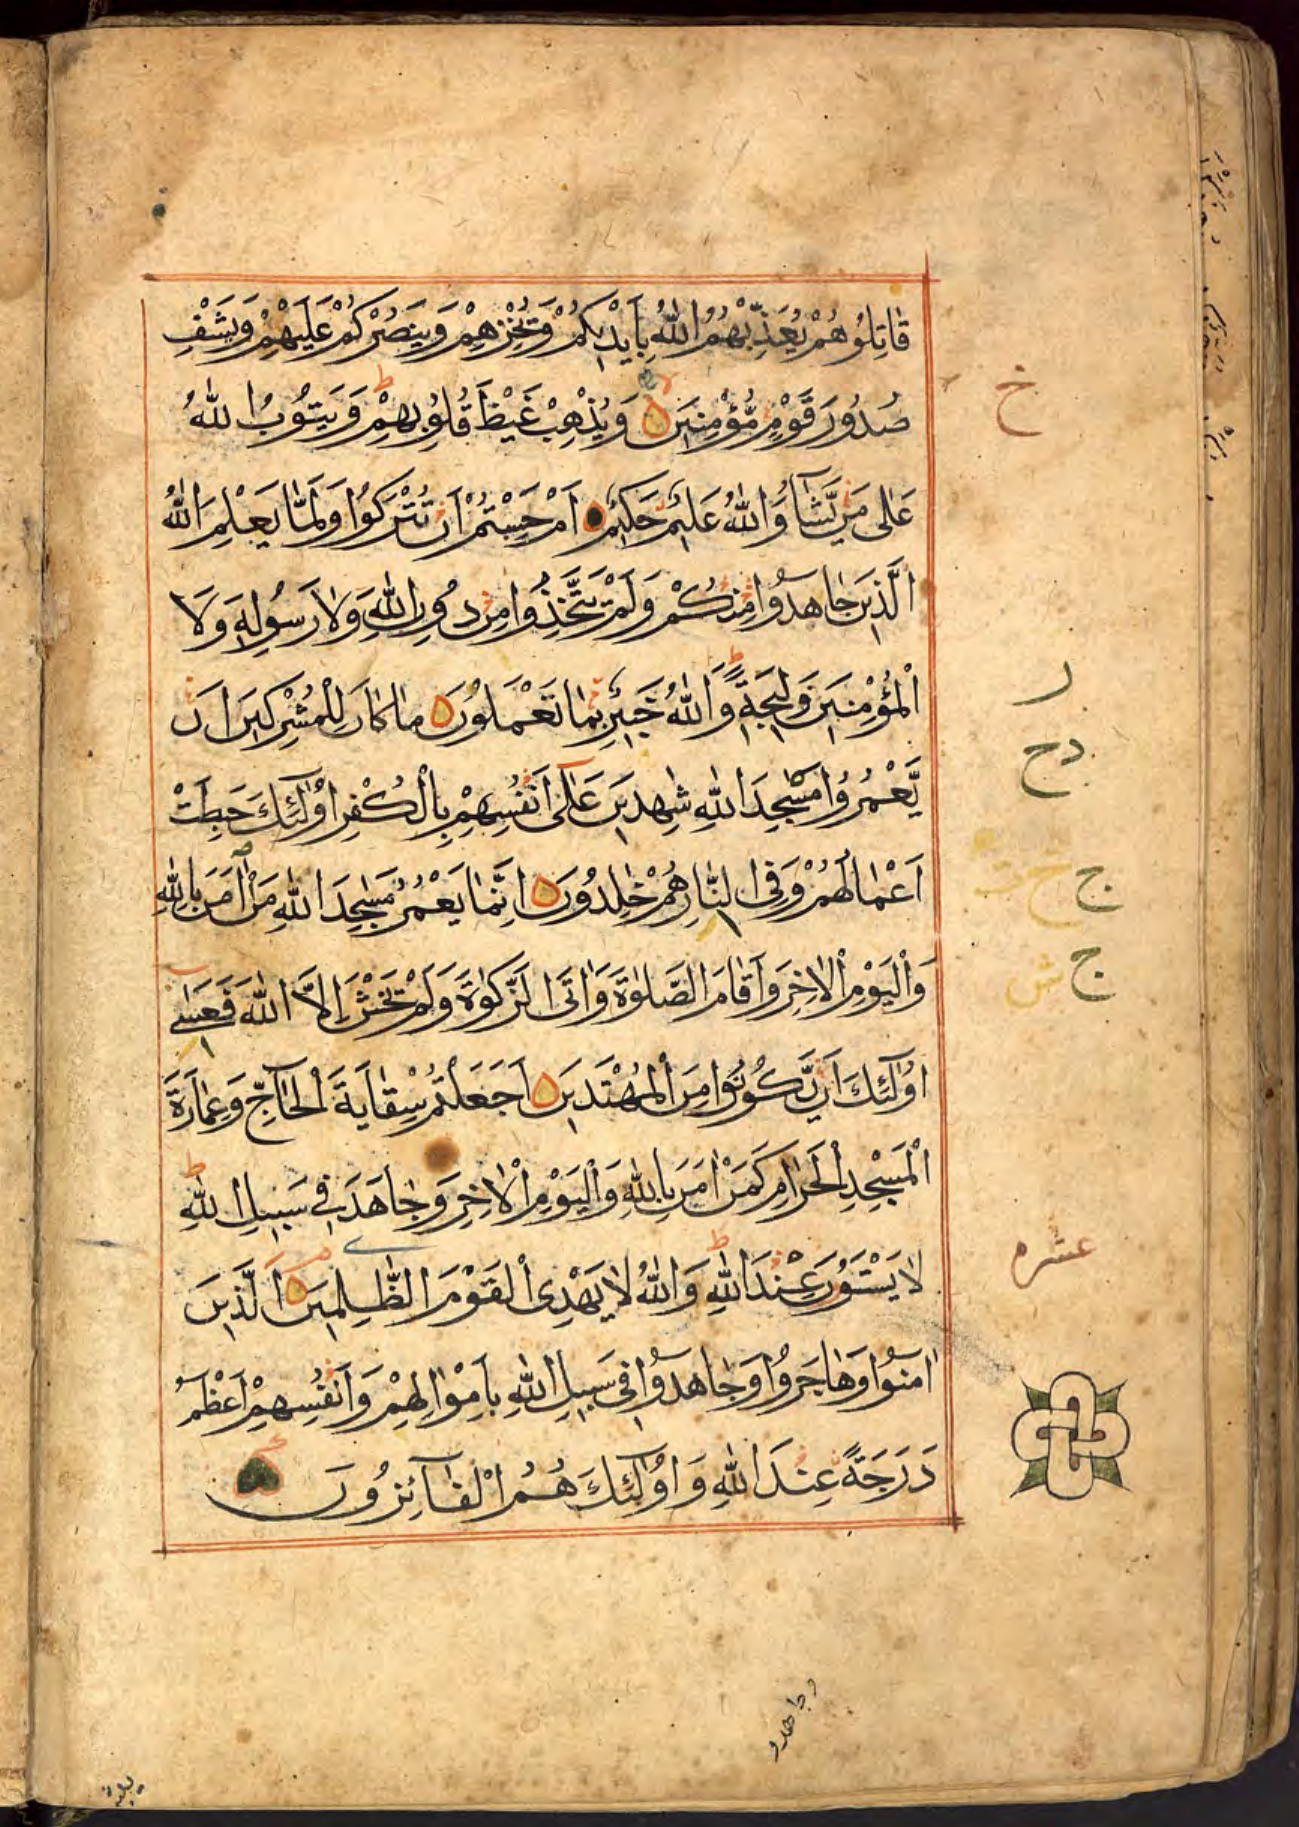 قَاتِلُوهُمْ يُعَذِّبْهُمُ اللّٰهُ بِاَيْدِيكُمْ وَيُخْزِهِمْ وَيَنْصُرْكُمْ عَلَيْهِمْ وَيَشْفِ
خ
صُدُورَ قَوْمٍ مُّؤْمِنِينَ وَيُذْهِبْ غَيْظَ قُلُوبِهِمْ وَيَتُوبُ اللّٰهُ
عَلٰى مَنْ يَّشَآءُ وَاللّٰهُ عَلِيمٌ حَكِيمٌ اَمْ حَسِبْتُمْ اَنْ تُتْرَكُوا وَلَمَّا يَعْلَمِ اللّٰهُ
الَّذِينَ جَاهَدُوا مِنْكُمْ وَلَمْ يَتَّخِذُوا مِنْ دُونِ اللّٰهِ وَلَا رَسُولِهِ وَلَا
ر
الْمُؤْمِنِينَ وَلِيجَةً وَاللّٰهُ خَبِيرٌ بِمَا تَعْمَلُونَ مَا كَانَ لِلْمُشْرِكِينَ اَنْ
دح
يَّعْمُرُوا مَسٰجِدَ اللّٰهِ شٰهِدِينَ عَلٰٓى اَنْفُسِهِمْ بِالْكُفْرِ اُولٰٓئِكَ حَبِطَتْ
ج
اَعْمَالُهُمْ وَفِى النَّارِ هُمْ خٰلِدُونَ اِنَّمَا يَعْمُرُ مَسٰجِدَ اللّٰهِ مَنْ اٰمَنَ بِاللّٰهِ
ج ش
وَالْيَوْمِ الْاٰخِرِ وَاَقَامَ الصَّلٰوةَ وَاٰتَى الزَّكٰوةَ وَلَمْ يَخْشَ اِلَّا اللّٰهَ فَعَسٰٓى
اُولٰٓئِكَ اَنْ يَّكُونُوا مِنَ الْمُهْتَدِينَ اَجَعَلْتُمْ سِقَايَةَ الْحَآجِّ وَعِمَارَةَ
الْمَسْجِدِ الْحَرَامِ كَمَنْ اٰمَنَ بِاللّٰهِ وَالْيَوْمِ الْاٰخِرِ وَجَاهَدَ فِى سَبِيلِ اللّٰهِ
عشره
لَا يَسْتَوُونَ عِنْدَ اللّٰهِ وَاللّٰهُ لَا يَهْدِى الْقَوْمَ الظّٰلِمِينَ اَلَّذِينَ
اٰمَنُوا وَهَاجَرُوا وَجَاهَدُوا فِى سَبِيلِ اللّٰهِ بِاَمْوَالِهِمْ وَاَنْفُسِهِمْ اَعْظَمُ
دَرَجَةً عِنْدَ اللّٰهِ وَاُولٰٓئِكَ هُمُ الْفَآئِزُونَ
وجاهدو